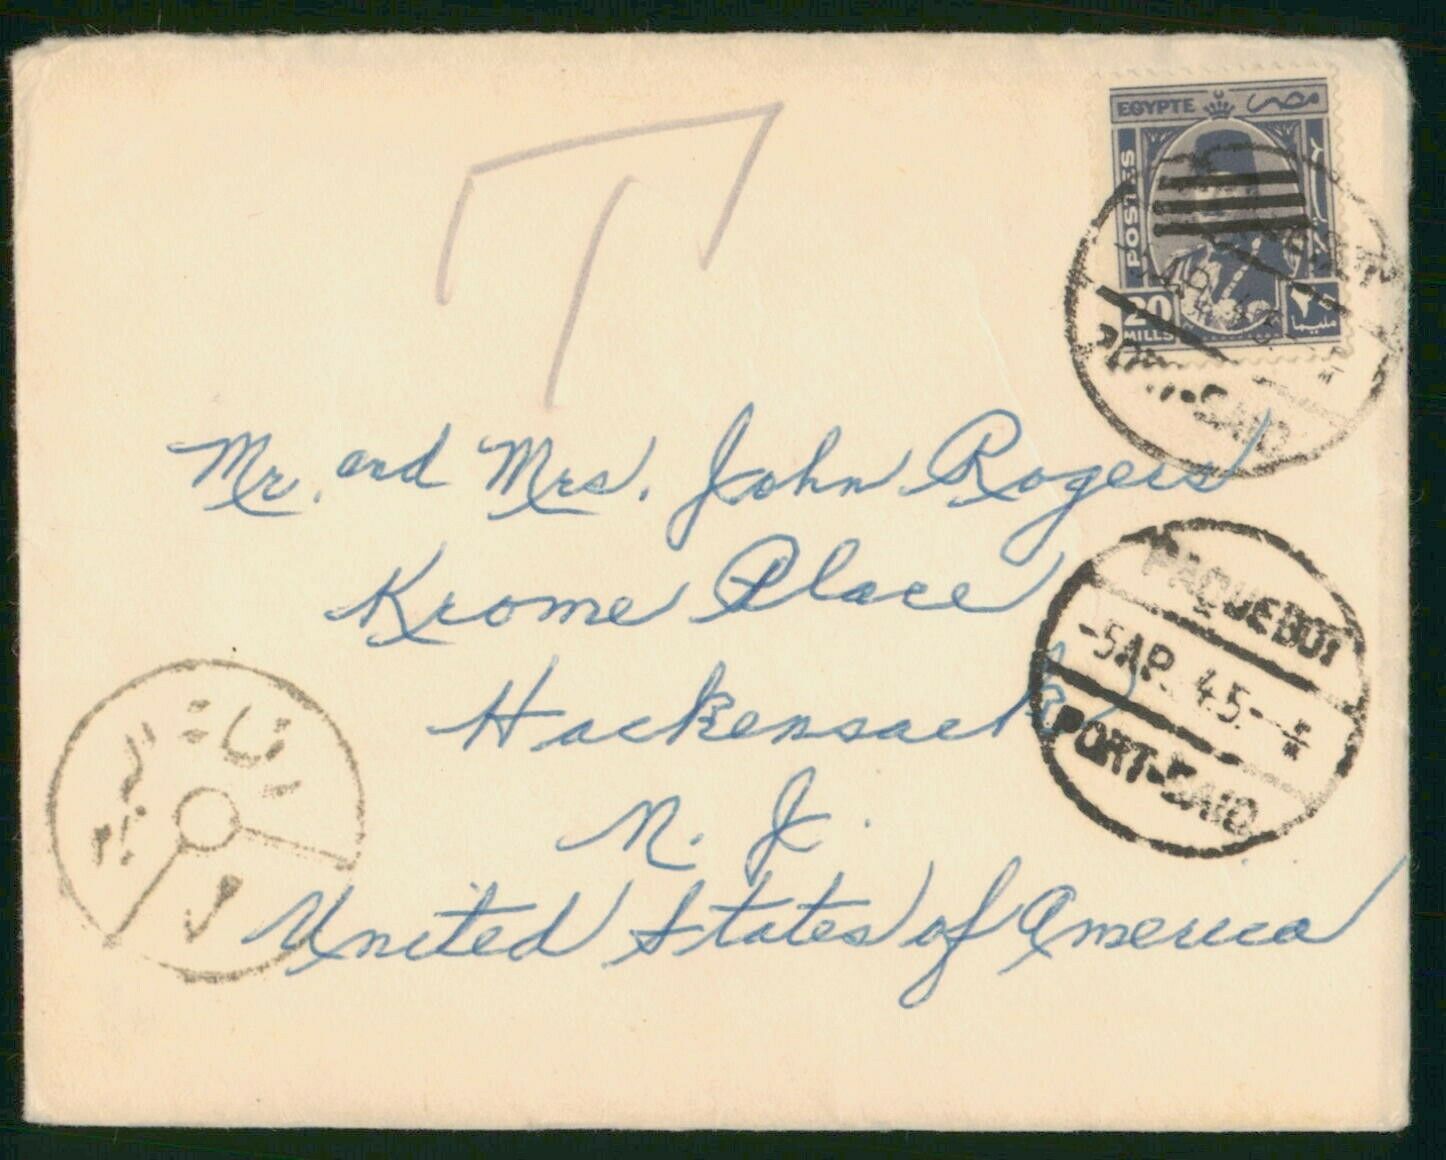 T
EGYPTE مصر
POSTES
20
MILLS
٢٠
مليما
PORT-SAID
Mr. and Mrs. John Rogers
Krome Place
Hackensack
N. J.
United States of America
PAQUEBOT
-5 AP. 45-
PORT-SAID